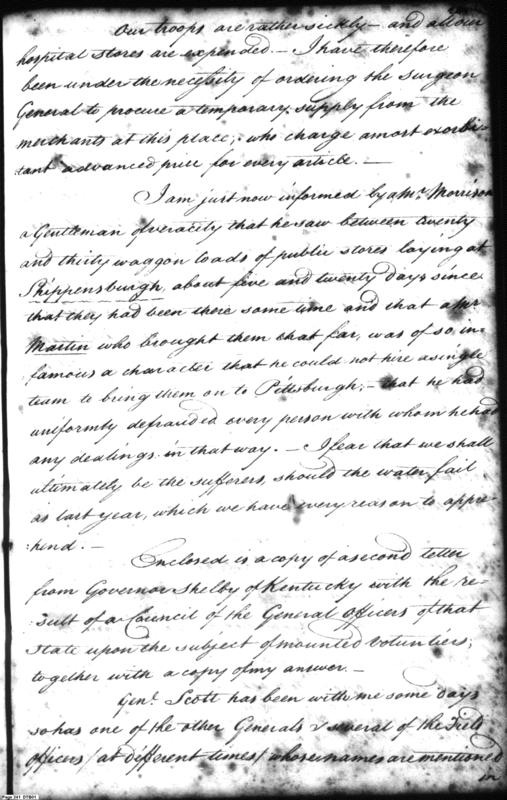 Our troops are rather sickly — and all our
hospital stores are expended. — I have therefore
been under the necessity of ordering the Surgeon
General to procure a temporary supply from the
merchants at this place, who charge a most exorbi-
:tant advanced price for every article. —
I am just now informed by a Mr. Morrison
a Gentleman of veracity that he saw between twenty
and thirty waggon loads of public stores laying at
Shippensburgh, about five and twenty days since
that they had been there some time and that a Mr
Martin who brought them that far, was of so in-
famous a character that he could not hire a single
team to bring them on to Pittsburgh; — that he had
uniformly defrauded every person with whom he had
any dealings in that way. — I fear that we shall
ultimately be the sufferers, should the water fail
as last year, which we have every reason to appre-
:hend. —
Enclosed is a copy of a second letter
from Governor Shelby of Kentucky with the re-
:sult of a Council of the General Officers of that
State upon the subject of mounted Voluntiers;
together with a copy of my answer. —
Genl. Scott has been with me some days
so has one of the other Generals & several of the Field
officers (at different times) whose names are mentioned
in
Page 241 DTB01